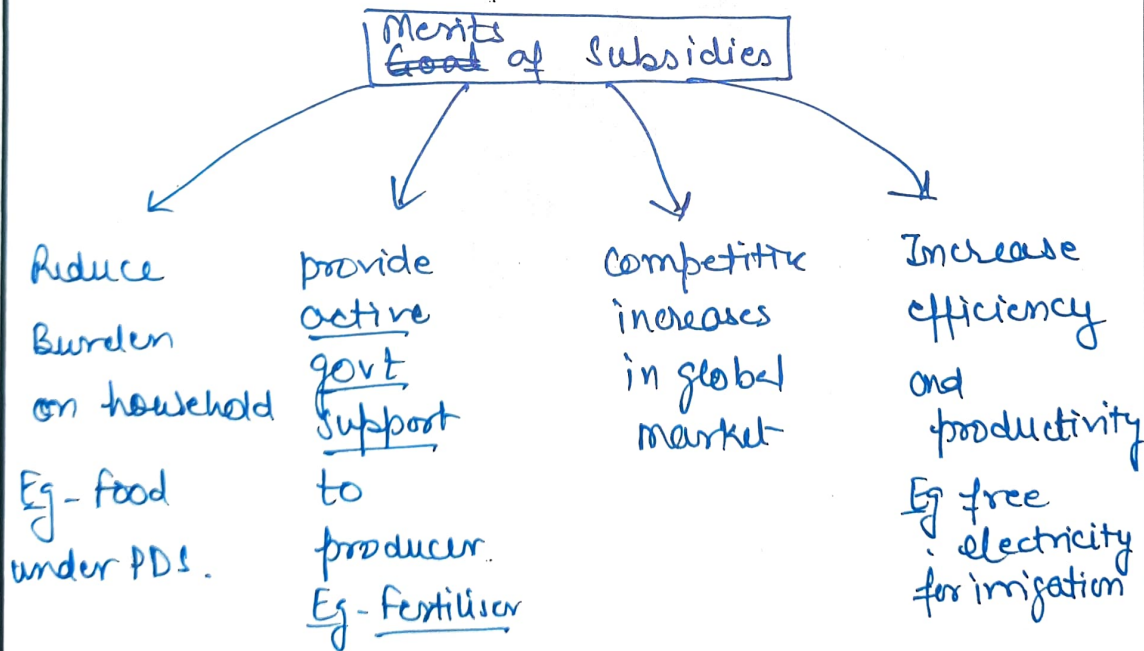 Merits
Goal of Subsidies
Reduce
Burden
on household
Eg - food
under PDS.
provide
active
govt
support
to
producer.
Eg - Fertiliser
competitive
increases
in global
market
Increase
efficiency
and
productivity
Eg free
: electricity
for irrigation